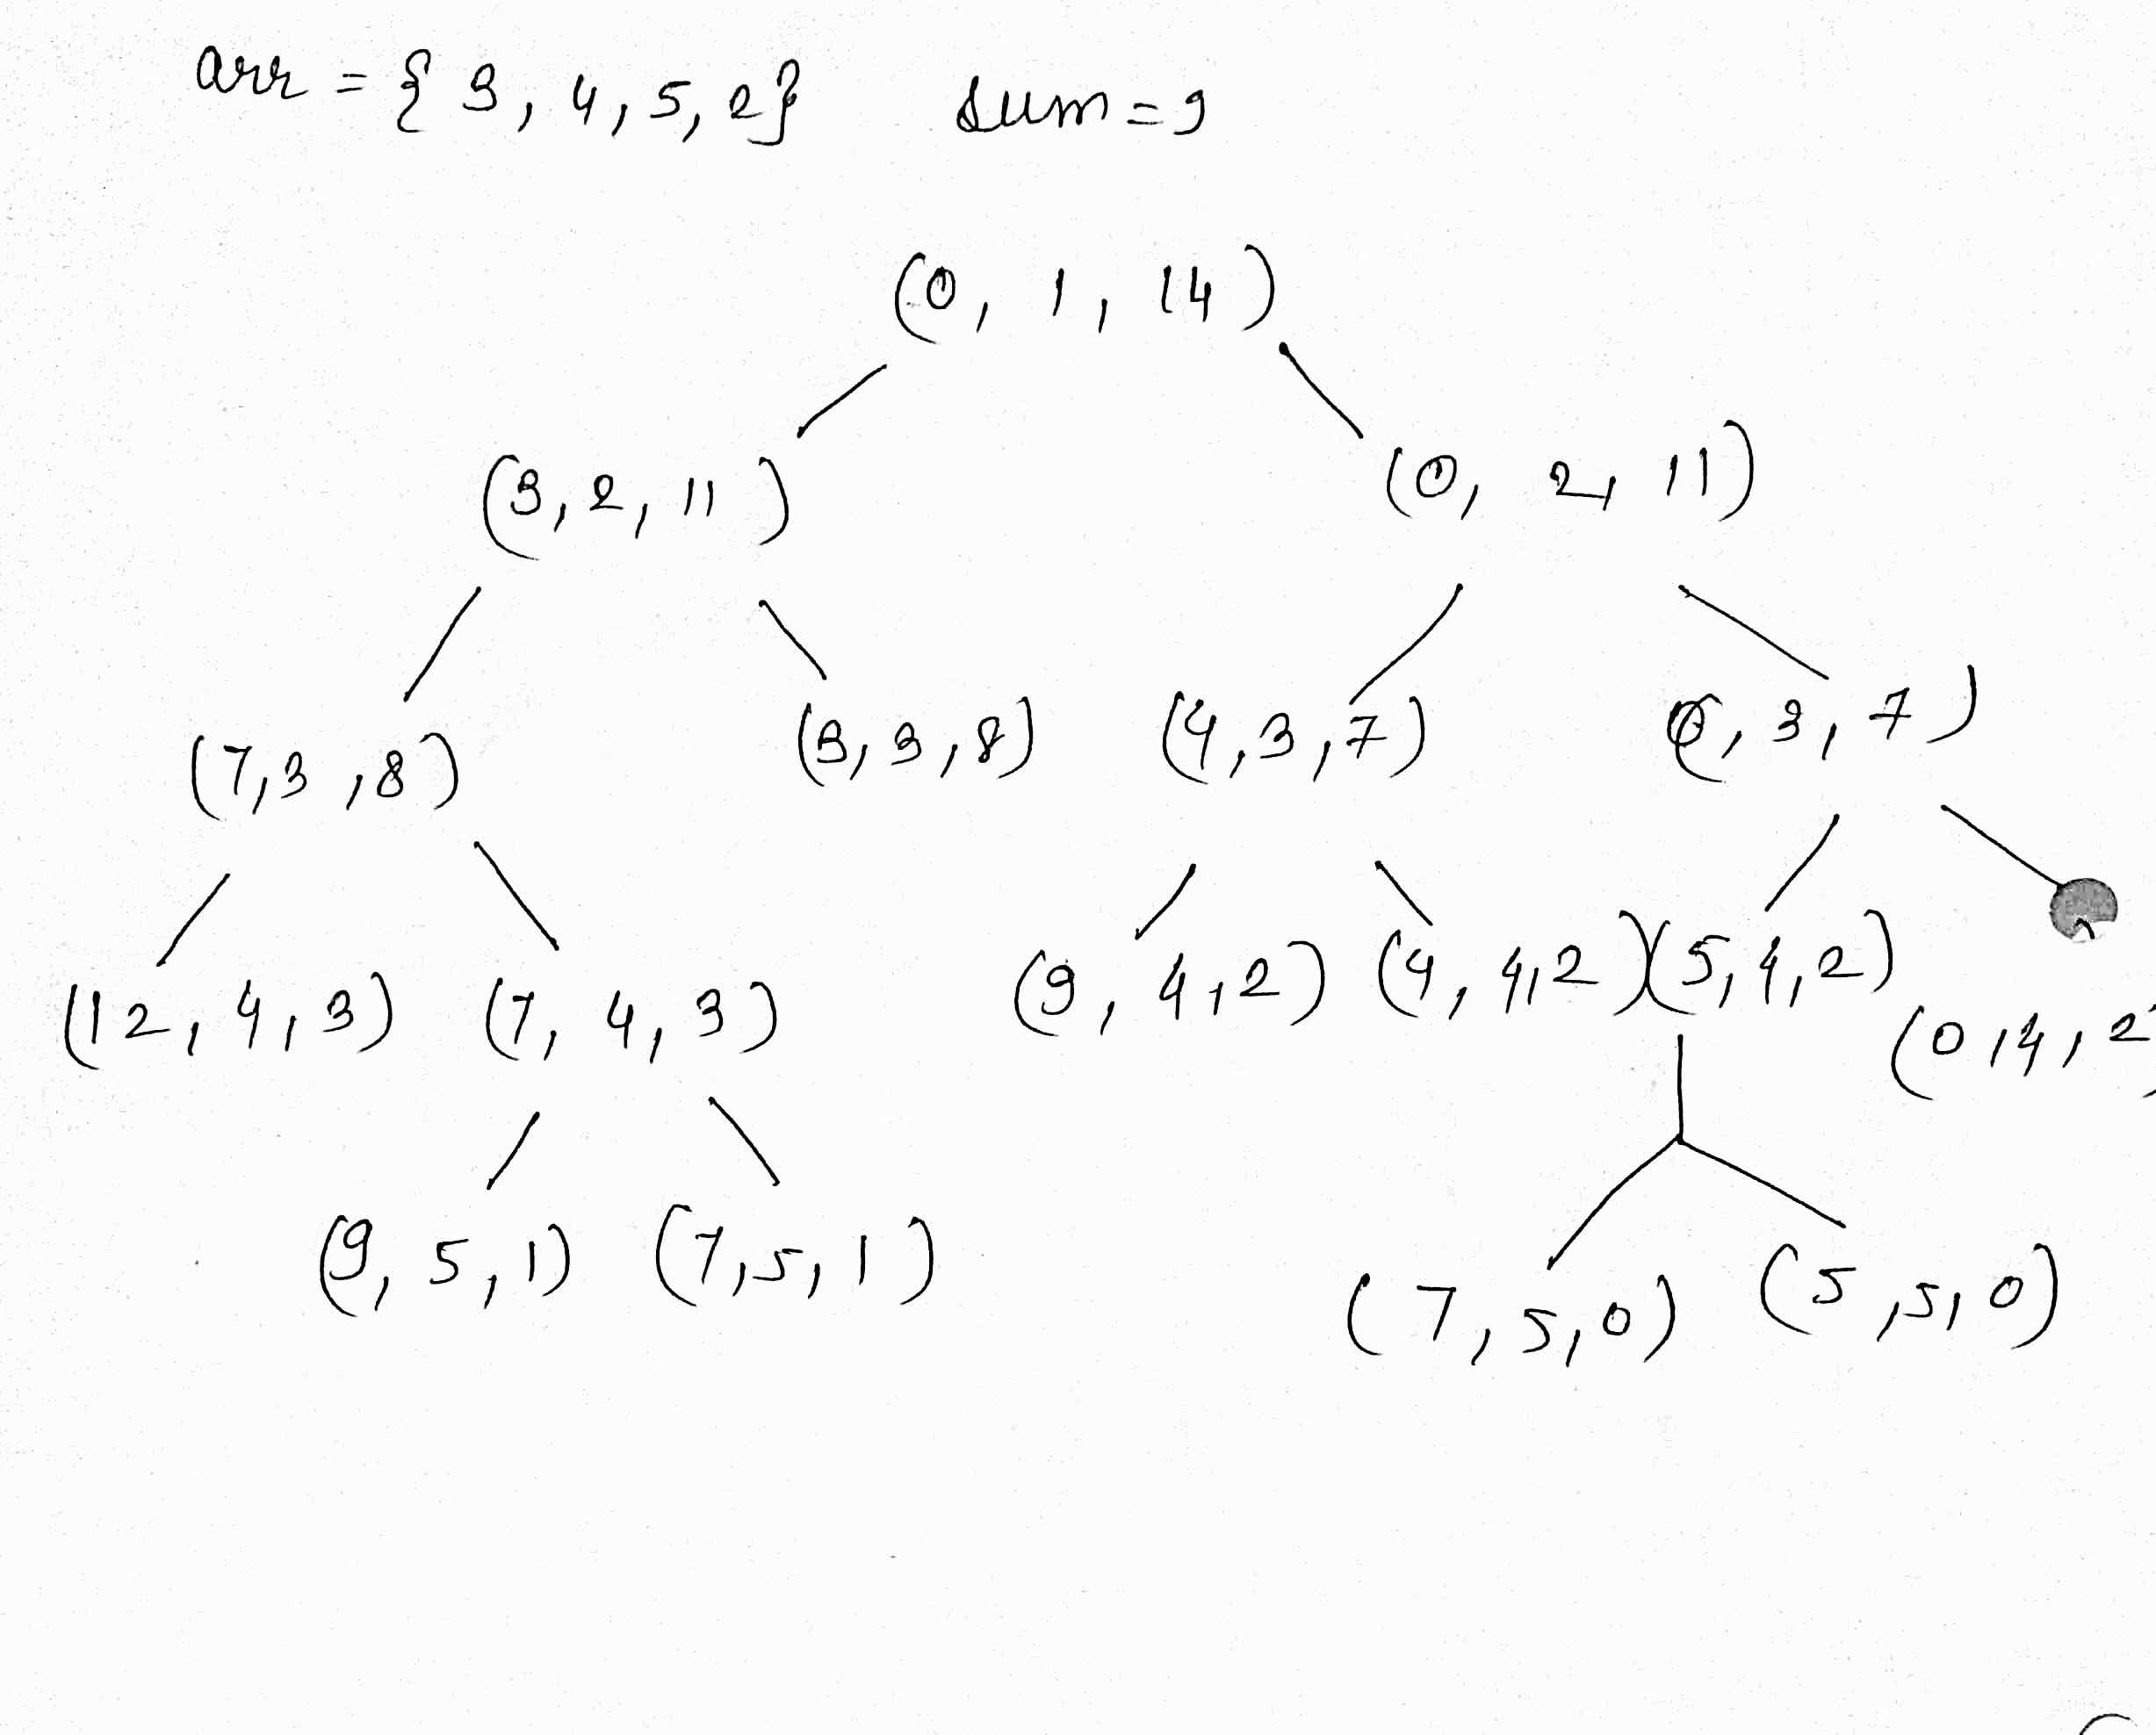 arr = { 3, 4, 5, 2} sum = 9
(0, 1, 14)
(3, 2, 11) (0, 2, 11)
(7,3,8) (3,3,8) (4,3,7) (0,3,7)
(12,4,3) (7,4,3) (9,4,2) (4,4,2) (5,4,2) (0,4,2)
(9,5,1) (7,5,1) (7,5,0) (5,5,0)